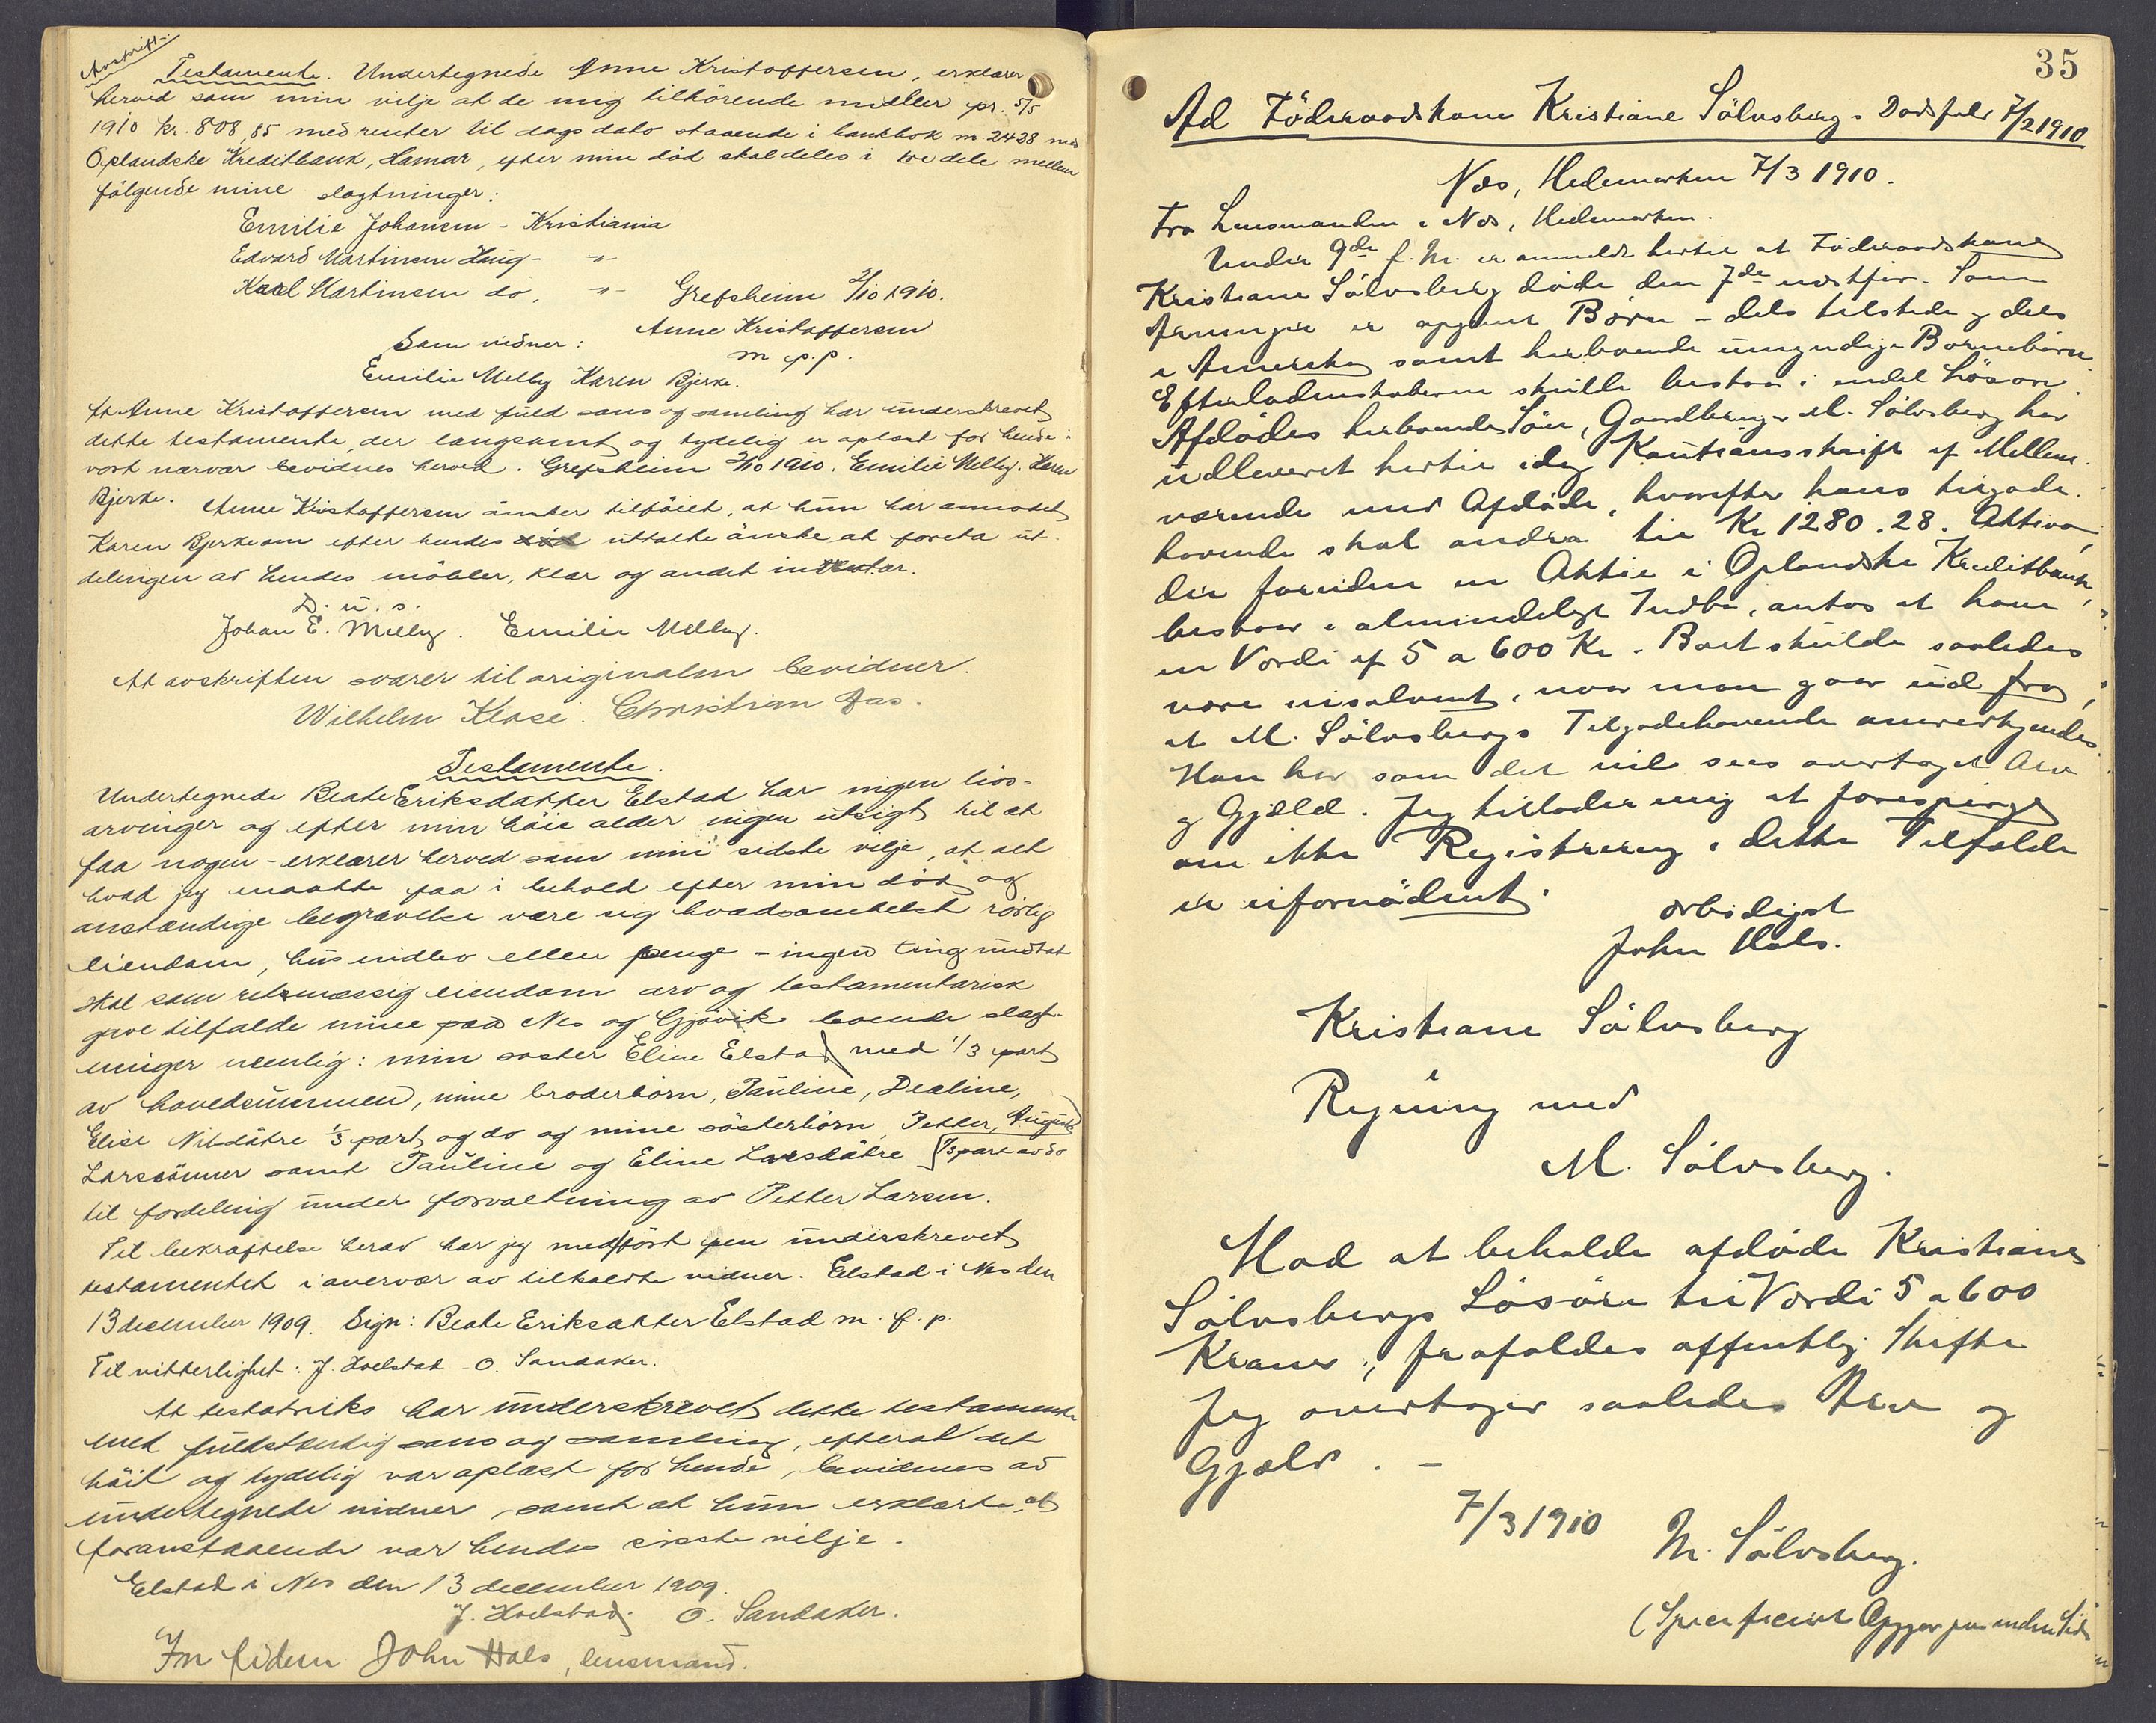 Avskrift.
Testamente. Undertegnede Anne Kristoffersen, erklærer
herved som min vilje at de mig tilhörende midler pr. 5/5
1910 kr. 808,85 med renter til dags dato staaende i bankbok nr 2438 med
Oplandske Kreditbank, Hamar, efter min död skal deles i tre dele mellem
fölgende mine slegtninger:
Emilie Johansen - Kristiania
Edvard Martinsen Haug - "-
Karl Martinsen do. "- Grefsheim 2/10 1910.
Anne Kristoffersen
Som vidner: m p.p.
Emilie Melby Karen Bjerke.
At Anne Kristoffersen med fuld sans og samling har underskrevet
dette testamente, der langsomt og tydelig er oplæst for hende i
vort nærvær bevidnes herved. Grefsheim 2/10 1910. Emilie Melby. Karen
Bjerke. Anne Kristoffersen önsker tilföiet, at hun har anmodet
Karen Bjerke om efter hendes uttalte önske at foreta ut-
delingen av hendes möbler, klær og andet inventar.
D. u. s.
Johan E. Melby. Emilie Melby.
At avskriften svarer til originalen bevidner.
Wilhelm Klose. Christian Aas.
Testamente.
Undertegnede Beate Eriksdatter Elstad har ingen livs-
arvinger og efter min höie alder ingen utsigt til at
faa nogen - erklærer herved som min sidste vilje, at alt
hvad jeg maatte faa i behold efter min död og
anstændige begravelse være sig hvadsomhelst rörlig
eiendom, hus indbo eller penge - ingen ting undtat
skal som retsmæssig eiendom arv og testamentarisk
gave tilfalde mine paa Nes og Gjövik boende slegt-
ninger nemlig: min söster Eline Elstad med 1/3 part
av hovedsummen, mine broderbörn, Pauline, Dealine,
Elise Nilsdötre 1/3 part og do og mine sösterbörn Petter, August
Larssönner samt Pauline og Eline Larsdötre (1/3 part av do
til fordeling under forvaltning av Petter Larsen.
Til bekræftelse herav har jeg med fört pen underskrevet
testamentet i overvær av tilkaldte vidner. Elstad i Nes den
13 december 1909. Sign: Beate Eriksdatter Elstad m. f. p.
Til vitterlighet: J. Hoelstad O. Sandaker.
At testatriks har underskrevet dette testamente
med fuldstændig sans og samling, efterat det
höit og tydelig var oplæst for hende, bevidnes av
undertegnede vidner, samt at hun erklærte, at
foranstaaende var hendes sidste vilje.
Elstad i Nes den 13 december 1909.
J. Hoelstad. O. Sandaker.
In fidem John Hals, lensmand.
35
Ad Föderaadskone Kristiane Sölvsbergs Dödsfald 7/2 1910
Næs, Hedemarken 7/3 1910.
Fra Lensmanden i Næs, Hedemarken.
Under 9de f. M. er anmeldt hertil at Föderaadskone
Kristiane Sölvsberg döde den 7de næstför. Som
Arvinger er opgivet Börn - dels tilstede og dels
i Amerika samt herboende umyndige Barnebörn.
Efterladenskaberne skulle bestaa i endel Lösöre.
Afdödes herboende Sön, Gaardbruger M. Sölvsberg har
udleveret hertil idag Kontraskrift af Mellem-
værende med Afdöde, hvorefter hans tilgode-
havende skal andra til Kr 1280.28. Aktiva,
der foruden en Aktie i Oplandske Kreditbank,
bestaar i almindeligt Indbo, antas at have
en Værdi af 5 a 600 Kr. - Boet skulde saaledes
være insolvent, naar man gaar ud fra,
at M. Sölvsbergs Tilgodehavende anerkjendes.
Han har som det vil sees overtaget Arv
og Gjæld. Jeg tillader mig at forespörge
om ikke Registrering i dette Tilfælde
er ufornödent.
ærbödigst
John Hals.
Kristiane Sölvsberg
i
Regning med
M. Sölvsberg.
Mod at beholde afdöde Kristiane
Sölvsbergs Lösöre til Værdi 5 a 600
Kroner, frafaldes offentlig Skifte
Jeg overtager saaledes Arv og
Gjæld. -
7/3 1910 M. Sölvsberg.
(Specificeret Opgjör paa anden Side